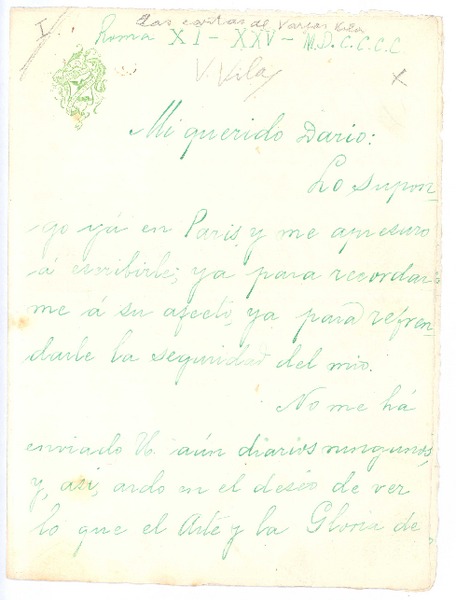 I
Las cartas de Vargas Vila
Roma XI - XXV - M.D.C.C.C.C.
V. Vila
x
Mi querido Dario:
Lo supon-
go yá en Paris, y me apresuro
á escribirle; ya para recordar-
me á su afecto, ya para refren-
darle la seguridad del mio.
No me há
enviado V. aún diarios ningunos,
y, asi, ardo en el deseo de ver
lo que el Arte y la Gloria de-